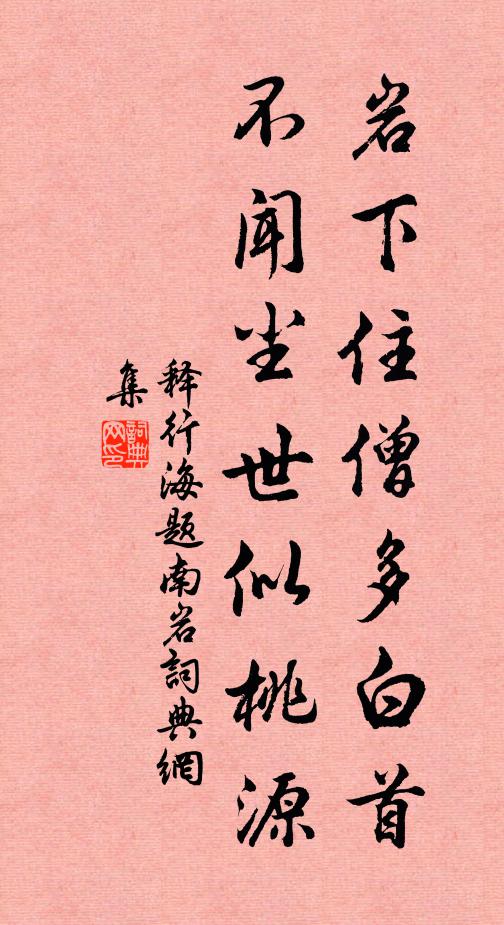 岩下住僧多白首
不闻尘世似桃源
释行海题南岩詞典網
集
詞典
网印